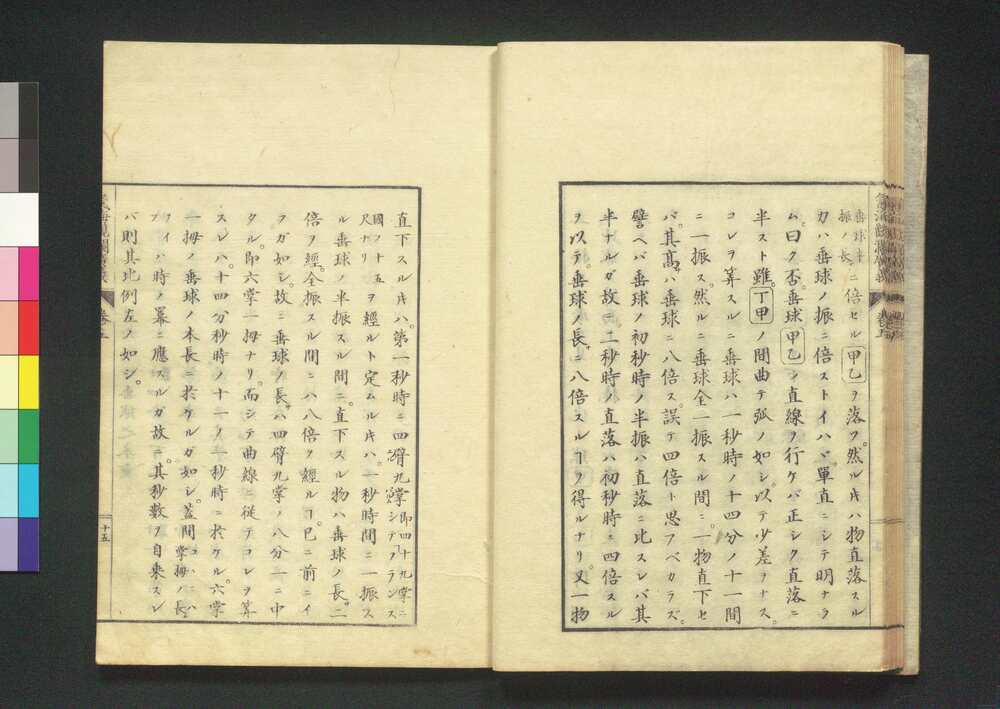 垂球半
振ノ長ニ倍セル甲乙ヲ落フ。然ル𪜈ハ物直落スル
カハ垂球ノ振ニ倍ストイハヾ單直ニシテ明ナラ
ム。曰ク否。垂球甲乙ノ直線ヲ行ケバ正シク直落ニ
半スト雖。丁甲ノ間曲テ弧ノ如シ。以テ少差ヲナス。
コレヲ算スルニ垂球ハ一秒時ノ十四分ノ十一間
ニ一振ス。然ルニ垂球全一振スル間ニ。一物直下セ
バ。其高サハ垂球ニ八倍ス。誤テ四倍ト思フベカラズ。
譬ヘバ垂球ノ初秒時ノ半振ハ直落ニ比スレバ其
半ナルガ故ニ。二秒時ノ直落ハ初秒時ノ四倍スル
ヲ以テ。垂球ノ長サニ八倍スルヿヲ得ルナリ。又一物
直下スル𪜈ハ。第一秒時ニ四臂九掌即四十九掌ニシテフランス
國ノ十五尺ナリヲ經ルト定ムル𪜈ハ。一秒時間ニ一振ス
ル垂球ノ半振スル間ニ。直下スル物ハ垂球ノ長サニ
倍ヲ經。全振スル間ニハ八倍ヲ經ルヿ。已ニ前ニイ
フガ如シ。故ニ垂球ノ長サハ四臂九掌ノ八分一ニ中
タル。即六掌一拇ナリ。而シテ曲線ニ從テコレヲ算
スレバ。十四分秒時ノ十一ノ一秒時ニ於ケル。六掌
一拇ノ垂球ノ本長ニ於ケルガ如シ。蓋間
フハ時ノ冪ニ應スルガ故ニ。其秒數ヲ自乘スレ
バ則其比例左ノ如シ。
卷五
十五